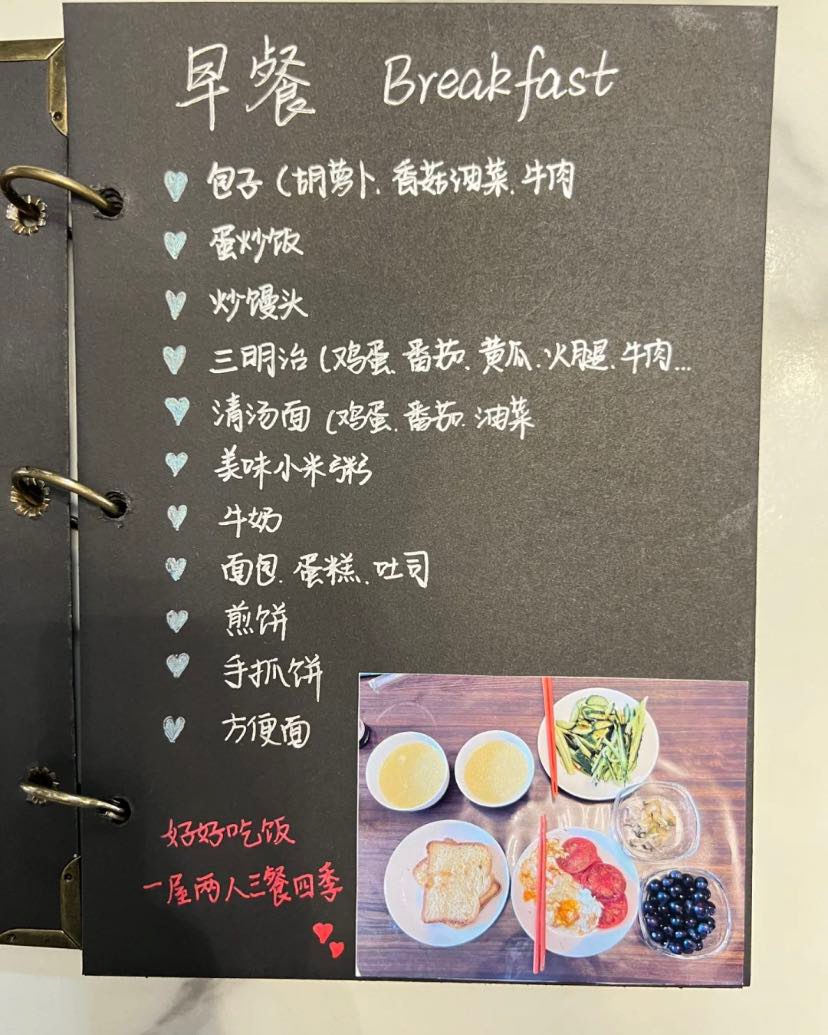 早餐 Breakfast
包子（胡萝卜、香菇油菜、牛肉
蛋炒饭
炒馒头
三明治（鸡蛋、番茄、黄瓜、火腿、牛肉...
清汤面（鸡蛋、番茄、油菜
美味小米粥
牛奶
面包、蛋糕、吐司
煎饼
手抓饼
方便面
好好吃饭
一屋两人三餐四季